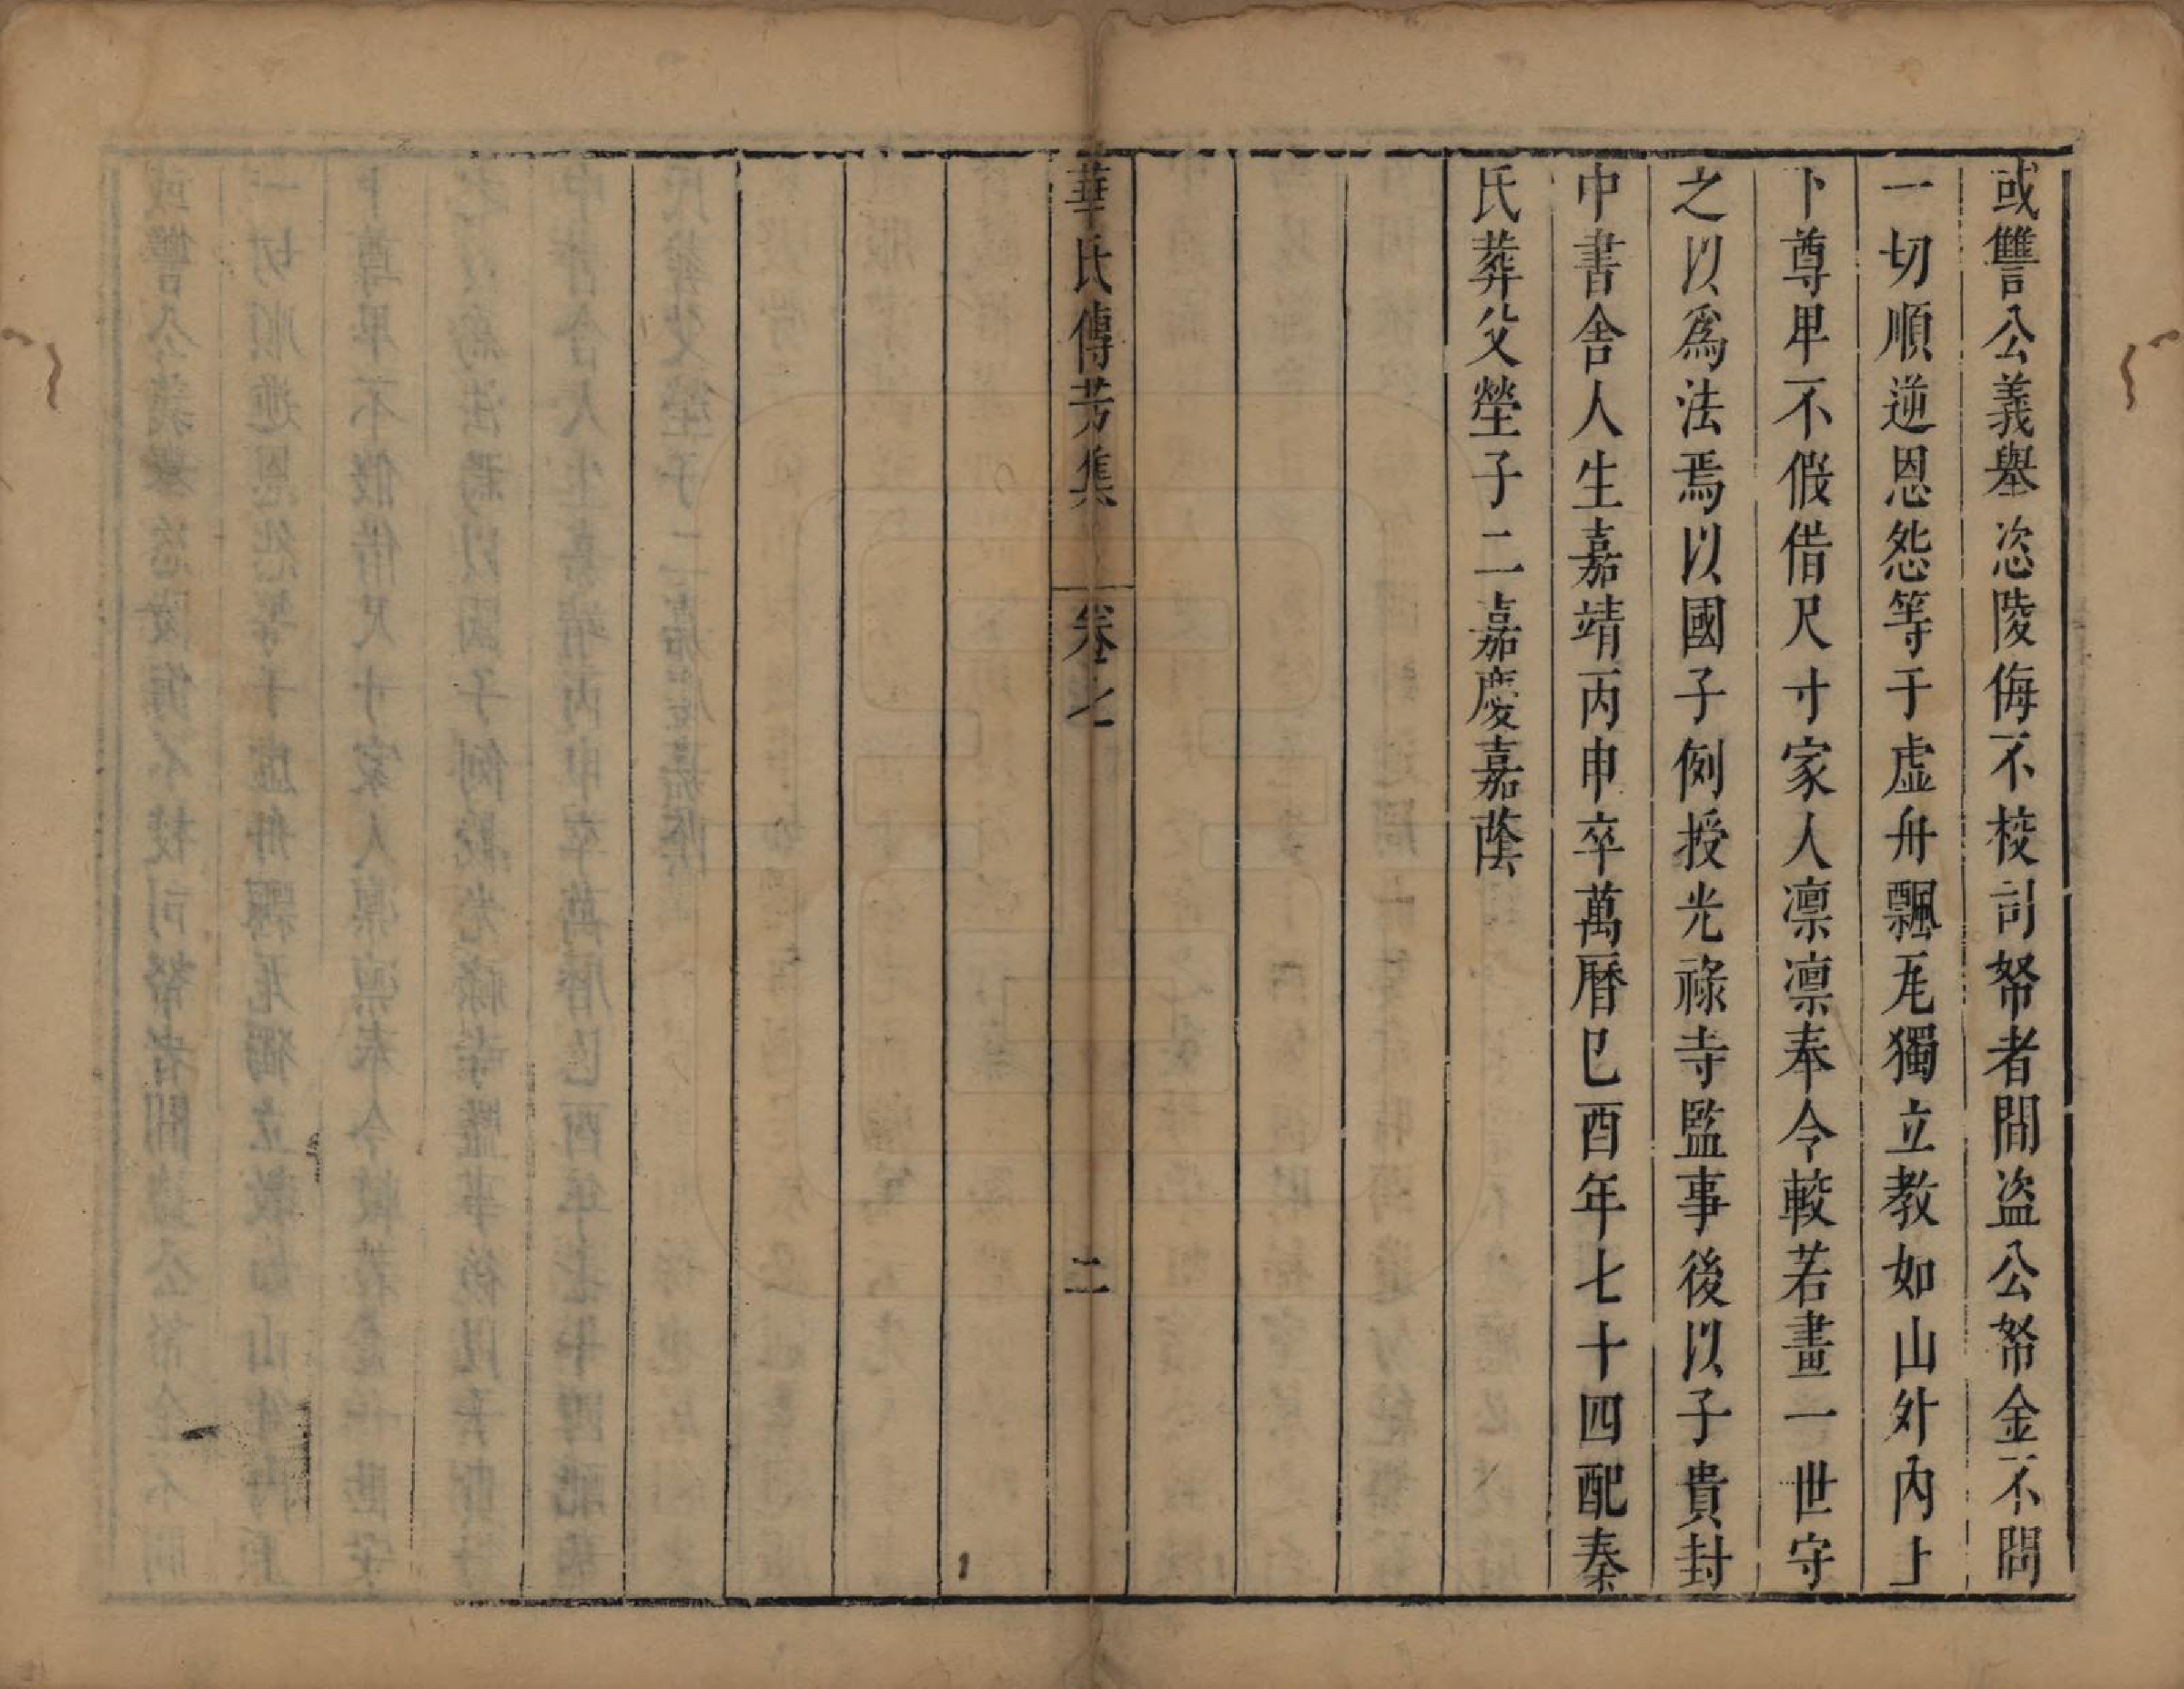 或讐公義舉恣陵侮不校司帑者間盜公帑金不問
一切順逆恩怨等于虛舟飄瓦獨立教如山外内上
下尊卑不假借尺寸家人凛凛奉令較若畫一世守
之以爲法焉以國子例授光祿寺監事後以子貴封
中書舍人生嘉靖丙申卒萬曆己酉年七十四配秦
氏葬父塋子二嘉慶嘉蔭
華氏傳芳集 卷七 二